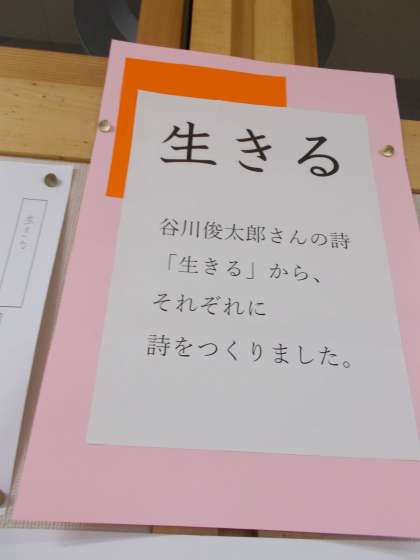 生きる
谷川俊太郎さんの詩
「生きる」から、
それぞれに
詩をつくりました。
生きる